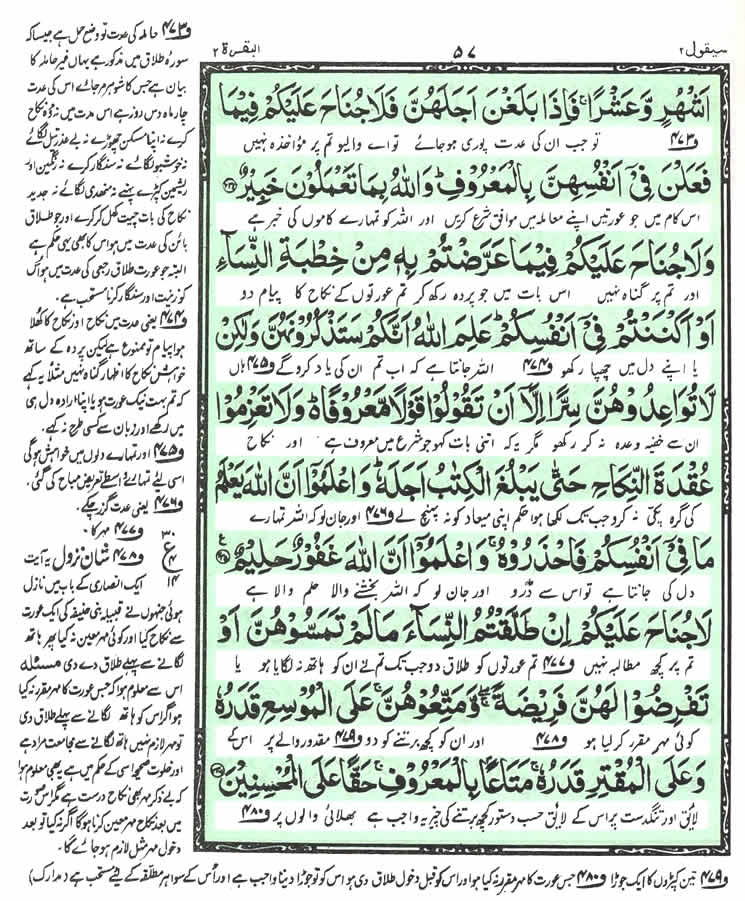 سیقول ٢
٥٧
البقرة ٢
اَشْهُرٍ وَّعَشْرًا ۚ فَاِذَا بَلَغْنَ اَجَلَهُنَّ فَلَا جُنَاحَ عَلَیْكُمْ فِیْمَا
ف۴۷۳ تو جب ان کی عدت پوری ہوجائے تو اے والیو تم پر مؤاخذہ نہیں
فَعَلْنَ فِیْۤ اَنْفُسِهِنَّ بِالْمَعْرُوْفِ ؕ وَاللّٰهُ بِمَا تَعْمَلُوْنَ خَبِیْرٌ ﴿۲۳۴﴾
اس کام میں جو عورتیں اپنے معاملہ میں موافق شرع کریں اور اللہ کو تمہارے کاموں کی خبر ہے
وَلَا جُنَاحَ عَلَیْكُمْ فِیْمَا عَرَّضْتُمْ بِهٖ مِنْ خِطْبَةِ النِّسَآءِ
اور تم پر گناہ نہیں اس بات میں جو پردہ رکھ کر تم عورتوں کے نکاح کا پیام دو
اَوْ اَكْنَنْتُمْ فِیْۤ اَنْفُسِكُمْ ؕ عَلِمَ اللّٰهُ اَنَّكُمْ سَتَذْكُرُوْنَهُنَّ وَلٰكِنْ
یا اپنے دل میں چھپا رکھو ف۴۷۴ اللہ جانتا ہے کہ اب تم ان کی یاد کرو گے ف۴۷۵ ہاں
لَّا تُوَاعِدُوْهُنَّ سِرًّا اِلَّاۤ اَنْ تَقُوْلُوْا قَوْلًا مَّعْرُوْفًا ؕ۬ وَلَا تَعْزِمُوْا
ان سے خفیہ وعدہ نہ کر رکھو مگر یہ کہ اتنی بات کہو جو شرع میں معروف ہے اور نکاح
عُقْدَةَ النِّكَاحِ حَتّٰی یَبْلُغَ الْكِتٰبُ اَجَلَهٗ ؕ وَاعْلَمُوْۤا اَنَّ اللّٰهَ یَعْلَمُ
کی گرہ پکی نہ کرو جب تک لکھا ہوا حکم اپنی میعاد کو نہ پہنچ لے ف۴۷۶ اور جان لو کہ اللہ تمہارے
مَا فِیْۤ اَنْفُسِكُمْ فَاحْذَرُوْهُ ۚ وَاعْلَمُوْۤا اَنَّ اللّٰهَ غَفُوْرٌ حَلِیْمٌ ﴿۲۳۵﴾
دل کی جانتا ہے تو اس سے ڈرو اور جان لو کہ اللہ بخشنے والا حلم والا ہے
لَا جُنَاحَ عَلَیْكُمْ اِنْ طَلَّقْتُمُ النِّسَآءَ مَا لَمْ تَمَسُّوْهُنَّ اَوْ
تم پر کچھ مطالبہ نہیں ف۴۷۷ تم عورتوں کو طلاق دو جب تک تم نے ان کو ہاتھ نہ لگایا ہو یا
تَفْرِضُوْا لَهُنَّ فَرِیْضَةً ۖۚ وَّمَتِّعُوْهُنَّ ۚ عَلَی الْمُوْسِعِ قَدَرُهٗ
کوئی مہر مقرر کرلیا ہو ف۴۷۸ اور ان کو کچھ برتنے کو دو ف۴۷۹ مقدور والے پر اس کے
وَعَلَی الْمُقْتِرِ قَدَرُهٗ ۚ مَتَاعًۢا بِالْمَعْرُوْفِ ۚ حَقًّا عَلَی الْمُحْسِنِیْنَ ﴿۲۳۶﴾
لائق اور تنگدست پر اس کے لائق حسب دستور کچھ برتنے کی چیز یہ واجب ہے بھلائی والوں پر ف۴۸۰
ف۴۷۳ حاملہ کی عدت تو وضع حمل ہے جیسا کہ
سورہ طلاق میں مذکور ہے یہاں غیر حاملہ کا
بیان ہے جس کا شوہر مرجائے اس کی عدت
چار ماہ دس روز ہے اس مدت میں نہ وہ نکاح
کرے نہ اپنا مسکن چھوڑے نہ بے عذر تیل لگائے
نہ خوشبو لگائے نہ سنگار کرے نہ رنگین اور
ریشمیں کپڑے پہنے نہ مہندی لگائے نہ جدید
نکاح کی بات چیت کھل کر کرے اور جو طلاق
بائن کی عدت میں ہو اس کا بھی یہی حکم ہے
البتہ جو عورت طلاق رجعی کی عدت میں ہو اس
کو زینت اور سنگار کرنا مستحب ہے۔
ف۴۷۴ یعنی عدت میں نکاح اور نکاح کا کھلا
ہوا پیام تو ممنوع ہے لیکن پردہ کے ساتھ
خواہش نکاح کا اظہار گناہ نہیں مثلاً یہ کہے
کہ تم بہت نیک عورت ہو یا اپنا ارادہ دل ہی
میں رکھے اور زبان سے کسی طرح نہ کہے۔
ف۴۷۵ اور تمہارے دلوں میں خواہش ہوگی
اسی لئے تمہارے واسطے تعریض مباح کی گئی۔
ف۴۷۶ یعنی عدت گزر چکے۔
ف۴۷۷ مہر کا۔
٣٠ ع ٤ ١٤
ف۴۷۸ شان نزول یہ آیت
ایک انصاری کے باب میں نازل
ہوئی جنہوں نے قبیلہ بنی حنیفہ کی ایک عورت
سے نکاح کیا اور کوئی مہر معین نہ کیا پھر ہاتھ
لگانے سے پہلے طلاق دے دی مسئلہ
اس سے معلوم ہوا کہ جس عورت کا مہر مقرر نہ کیا
ہو اگر اس کو ہاتھ لگانے سے پہلے طلاق دی
تو مہر لازم نہیں ہاتھ لگانے سے مجامعت مراد ہے
اور خلوت صحیحہ اسی کے حکم میں ہے یہ بھی معلوم ہوا
کہ بے ذکر مہر بھی نکاح درست ہے مگر اس صورت
میں بعد نکاح مہر معین کرنا ہوگا اگر نہ کیا تو بعد
دخول مہر مثل لازم ہو جائے گا۔
ف۴۷۹ تین کپڑوں کا ایک جوڑا ف۴۸۰ جس عورت کا مہر مقرر نہ کیا ہو اور اس کو قبل دخول طلاق دی ہو اس کو تو جوڑا دینا واجب ہے اور اس کے سوا ہر مطلقہ کے لیے مستحب ہے (مدارک)